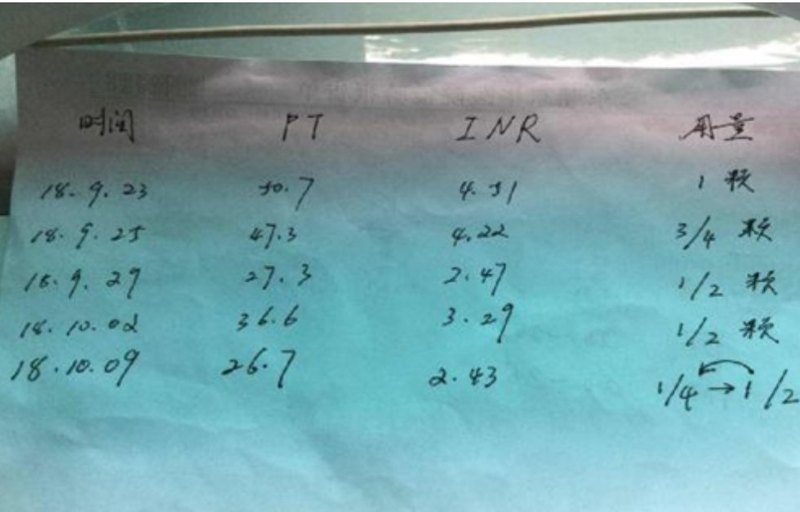 时间 PT INR 用量
18.9.23 50.7 4.51 1颗
18.9.25 47.3 4.22 3/4 颗
18.9.29 27.3 2.47 1/2 颗
18.10.02 36.6 3.29 1/2 颗
18.10.09 26.7 2.43 1/4→1/2